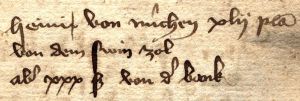 heinrich von Mchen xlij pla
von dem swin zol
ab xxx ß von d bank